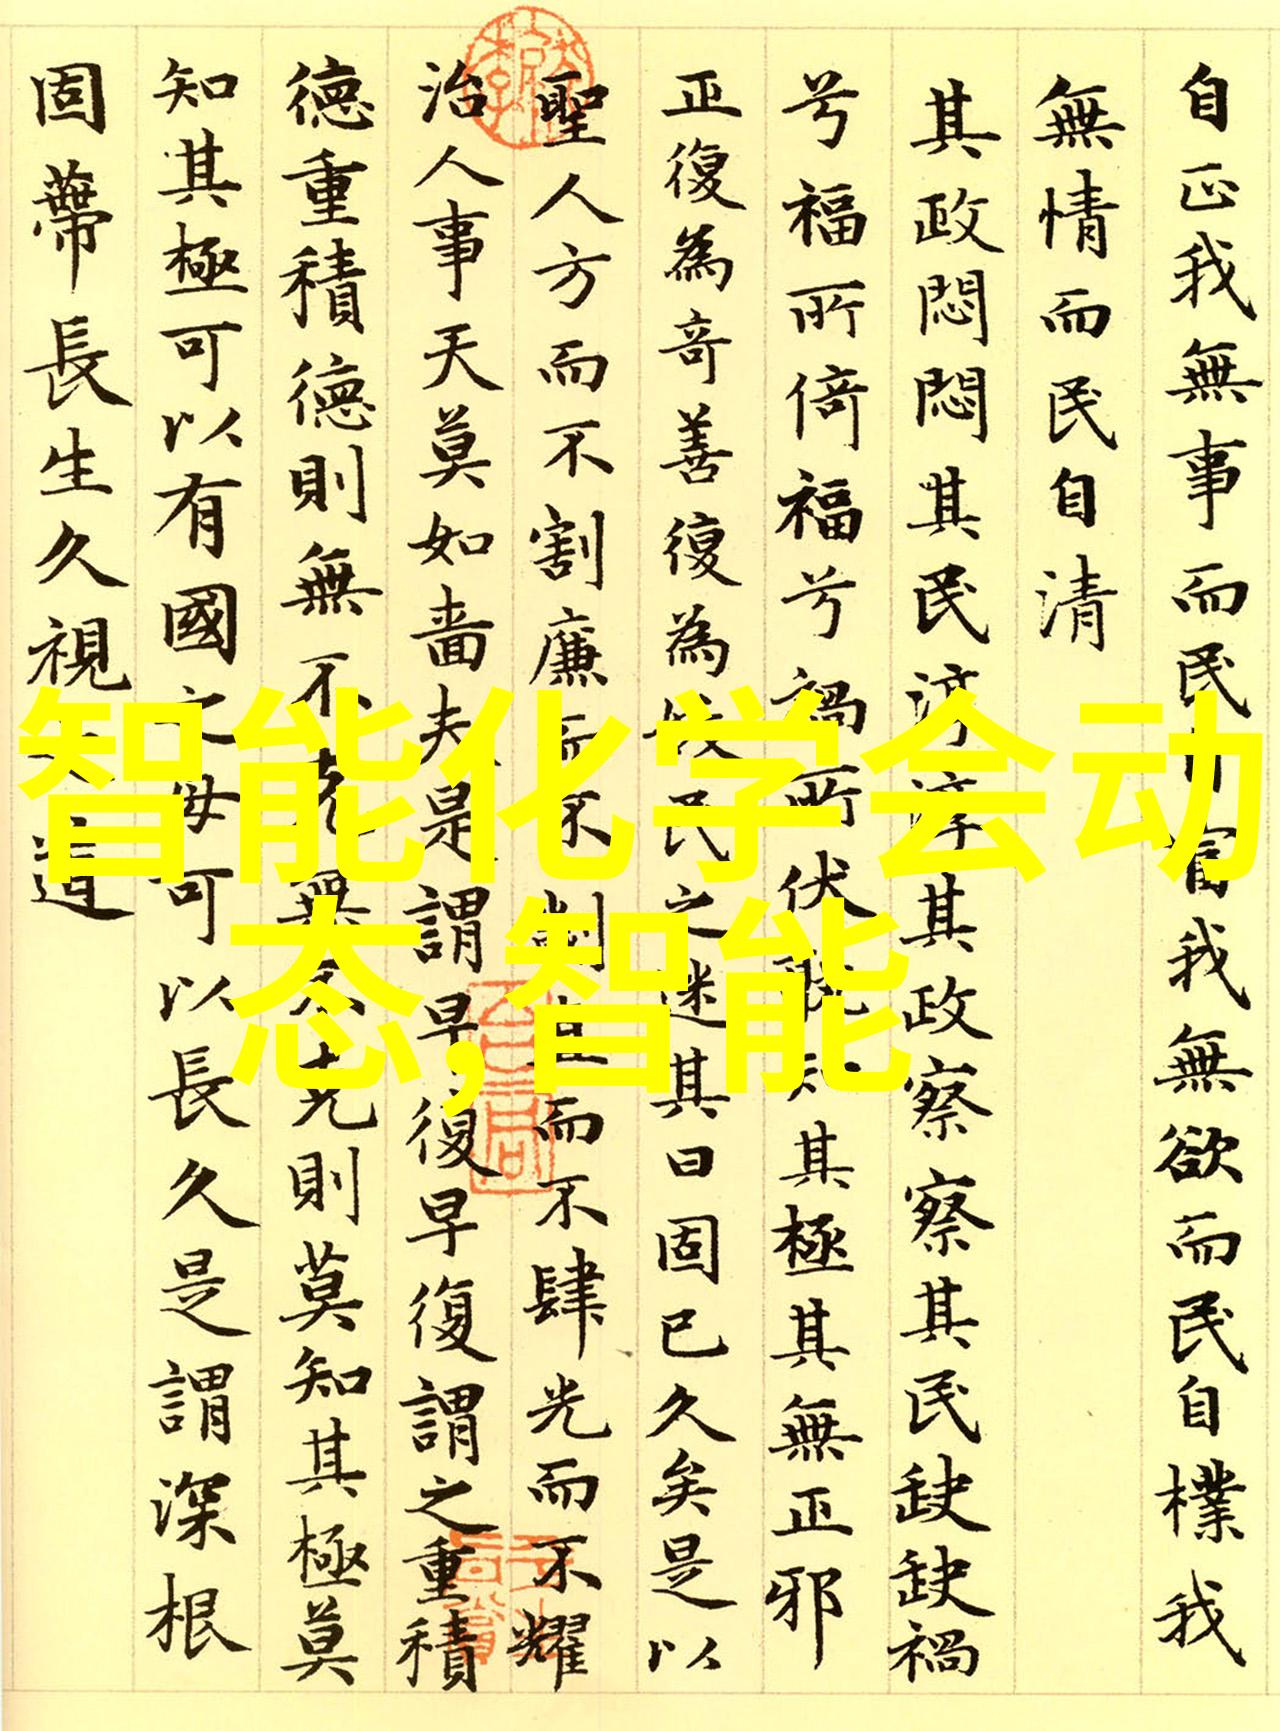 自正我無事而民自富我無欲而民自樸我
無情而民自清
其政悶悶其民淳淳其政察察其民缺缺禍
兮福所倚福兮禍所伏孰知其極其無正邪
正復為奇善復為妖民之迷其日固已久矣是以
聖人方而不割廉而不劌直而不肆光而不耀
治人事天莫如嗇夫是謂早復早復謂之重積
德重積德則無不克無不克則莫知其極莫
知其極可以有國之母可以長久是謂深根
固蔕長生久視之道
智能化学会动
态,智能